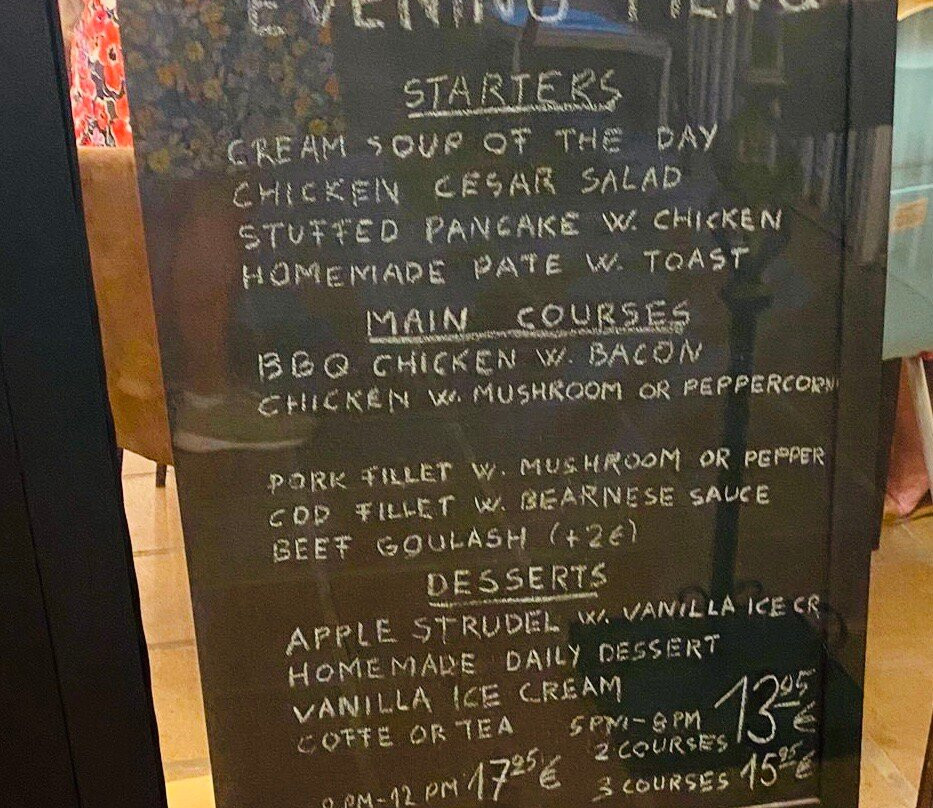 EVENING MENU
STARTERS
CREAM SOUP OF THE DAY
CHICKEN CESAR SALAD
STUFFED PANCAKE W. CHICKEN
HOMEMADE PATE W. TOAST
MAIN COURSES
BBQ CHICKEN W. BACON
CHICKEN W. MUSHROOM OR PEPPERCORN
PORK FILLET W. MUSHROOM OR PEPPER
COD FILLET W. BEARNESE SAUCE
BEEF GOULASH (+2€)
DESSERTS
APPLE STRUDEL W. VANILLA ICE CR
HOMEMADE DAILY DESSERT
VANILLA ICE CREAM
COFFE OR TEA
5PM-8PM
2 COURSES 13 95 €
3 COURSES 15 95 €
PM-12 PM 17 95 €